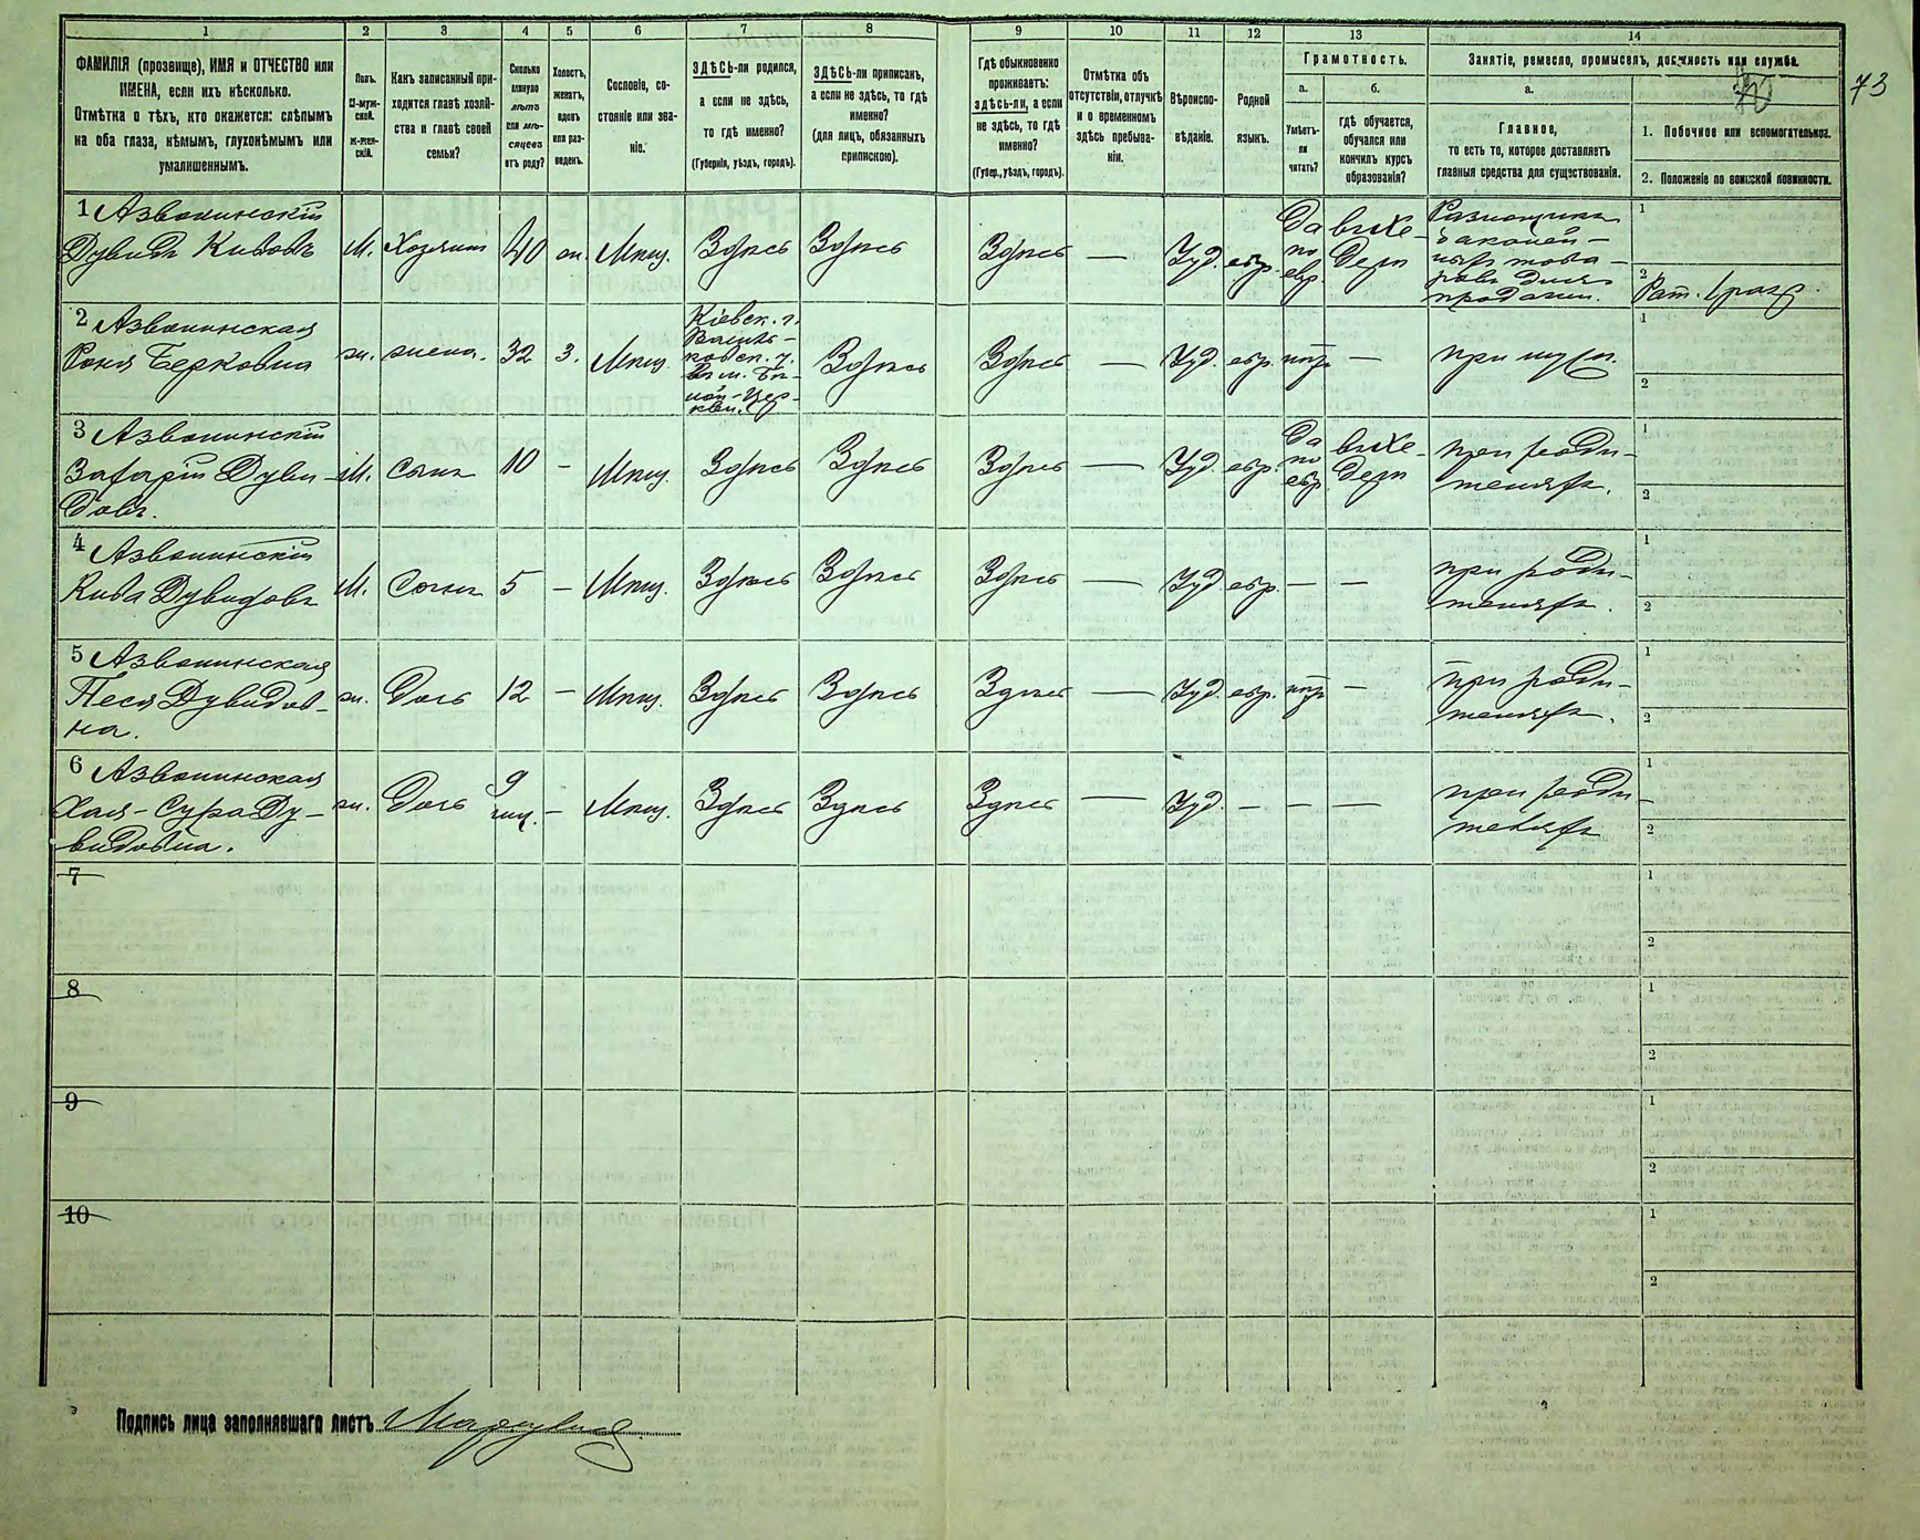 1 2 3 4 5 6 7 8 9 10 11 12 13 14
ФАМИЛІЯ (прозвище), ИМЯ и ОТЧЕСТВО или
ИМЕНА, если ихъ нѣсколько.
Отмѣтка о тѣхъ, кто окажется: слѣпымъ
на оба глаза, нѣмымъ, глухонѣмымъ или
умалишеннымъ.
Полъ.
М-муж-
ской.
Ж-жен-
скій.
Какъ записанный при-
ходится главѣ хозяй-
ства и главѣ своей
семьи?
Сколько
минуло
лѣтъ
или мѣ-
сяцевъ
отъ роду?
Холостъ,
женатъ,
вдовъ
или раз-
веденъ.
Сословіе, со-
стояніе или зва-
ніе.
ЗДѢСЬ-ли родился,
а если не здѣсь,
то гдѣ именно?
(Губернія, уѣздъ, городъ).
ЗДѢСЬ-ли приписанъ,
а если не здѣсь, то гдѣ
именно?
(для лицъ, обязанныхъ
припискою).
Гдѣ обыкновенно
проживаетъ:
здѣсь-ли, а если
не здѣсь, то гдѣ
именно?
(Губер., уѣздъ, городъ).
Отмѣтка объ
отсутствіи, отлучкѣ
и о временномъ
здѣсь пребыва-
ніи.
Вѣроиспо-
вѣданіе.
Родной
языкъ.
Грамотность.
а.
Умѣетъ-
ли
читать?
б.
гдѣ обучается,
обучался или
кончилъ курсъ
образованія?
Занятіе, ремесло, промыселъ, должность или служба.
а.
Главное,
то есть то, которое доставляетъ
главныя средства для существованія.
1. Побочное или вспомогательное.
2. Положеніе по воинской повинности.
73
1 Азвонинскій
Дувидъ Кивовъ
М.
Хозяинъ
40
Мѣщ.
Здѣсь
Здѣсь
Здѣсь
—
Іуд.
евр.
Да
по
евр.
въ хе-
дерѣ
продажи.
1
2
2 Азвонинская
Берковна
ж.
жена.
32
З.
Мѣщ.
Кіевск. г.
Василь-
ковск. у.
въ м. Бѣ-
лой-Цер-
кви.
Здѣсь
Здѣсь
—
Іуд.
евр.
нѣтъ
—
при мужѣ.
1
2
3 Азвонинскій
Захарій Дуви-
довъ.
М.
Сынъ
10
-
Мѣщ.
Здѣсь
Здѣсь
Здѣсь
—
Іуд.
евр.
Да
по
евр.
въ хе-
дерѣ
при роди-
теляхъ.
1
2
4 Азвонинскій
Кива Дувидовъ
М.
Сынъ
5
-
Мѣщ.
Здѣсь
Здѣсь
Здѣсь
—
Іуд.
евр.
—
—
при роди-
теляхъ.
1
2
5 Азвонинская
Песя Дувидов-
на.
ж.
Дочь
12
-
Мѣщ.
Здѣсь
Здѣсь
Здѣсь
—
Іуд.
евр.
нѣтъ
—
при роди-
теляхъ.
1
2
6 Азвонинская
Хая-Сура Ду-
видовна.
ж.
Дочь
9
-
Мѣщ.
Здѣсь
Здѣсь
Здѣсь
—
Іуд.
—
—
—
при роди-
теляхъ
1
2
7
1
2
8
1
2
9
1
2
10
1
2
Подпись лица заполнявшаго листъ